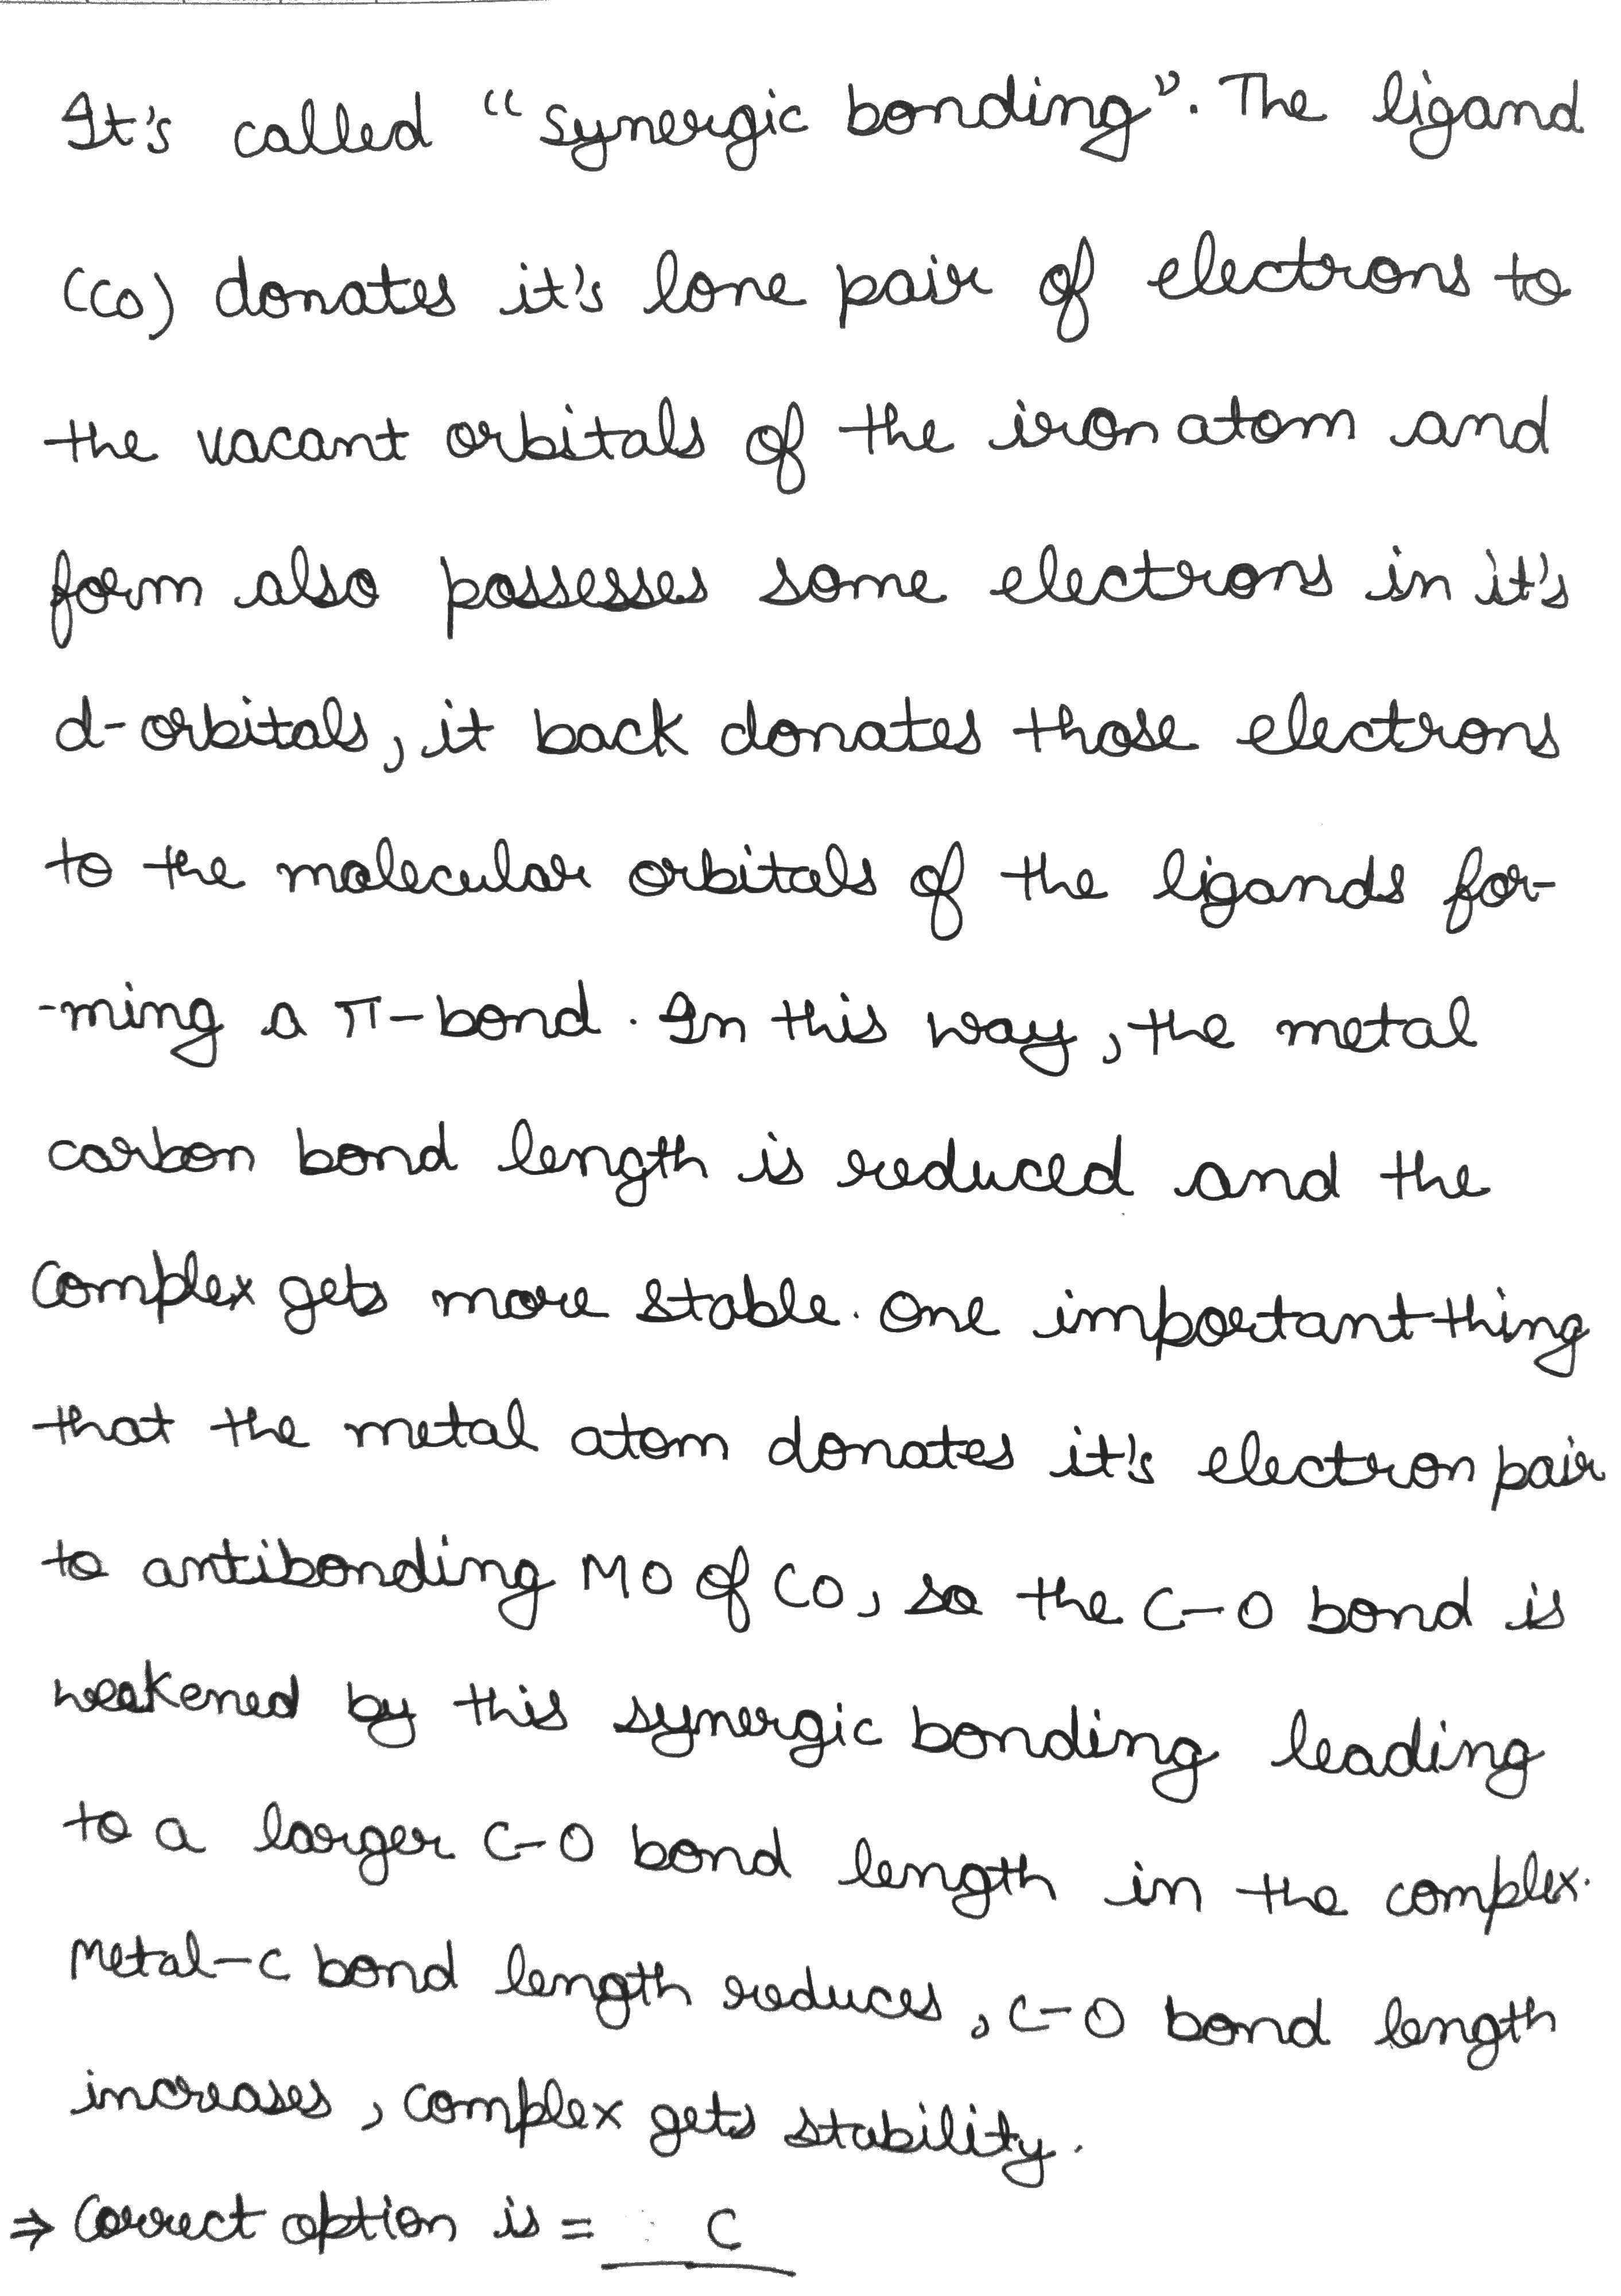 It's called "synergic bonding". The ligand
(CO) donates it's lone pair of electrons to
the vacant orbitals of the iron atom and
form also possesses some electrons in it's
d-orbitals, it back donates those electrons
to the molecular orbitals of the ligands for-
-ming a π-bond. In this way, the metal
carbon bond length is reduced and the
complex gets more stable. One important thing
that the metal atom donates it's electron pair
to antibonding MO of CO, so the C-O bond is
weakened by this synergic bonding leading
to a larger C-O bond length in the complex.
Metal-C bond length reduces, C-O bond length
increases, complex gets stability.
⇒ Correct option is = C